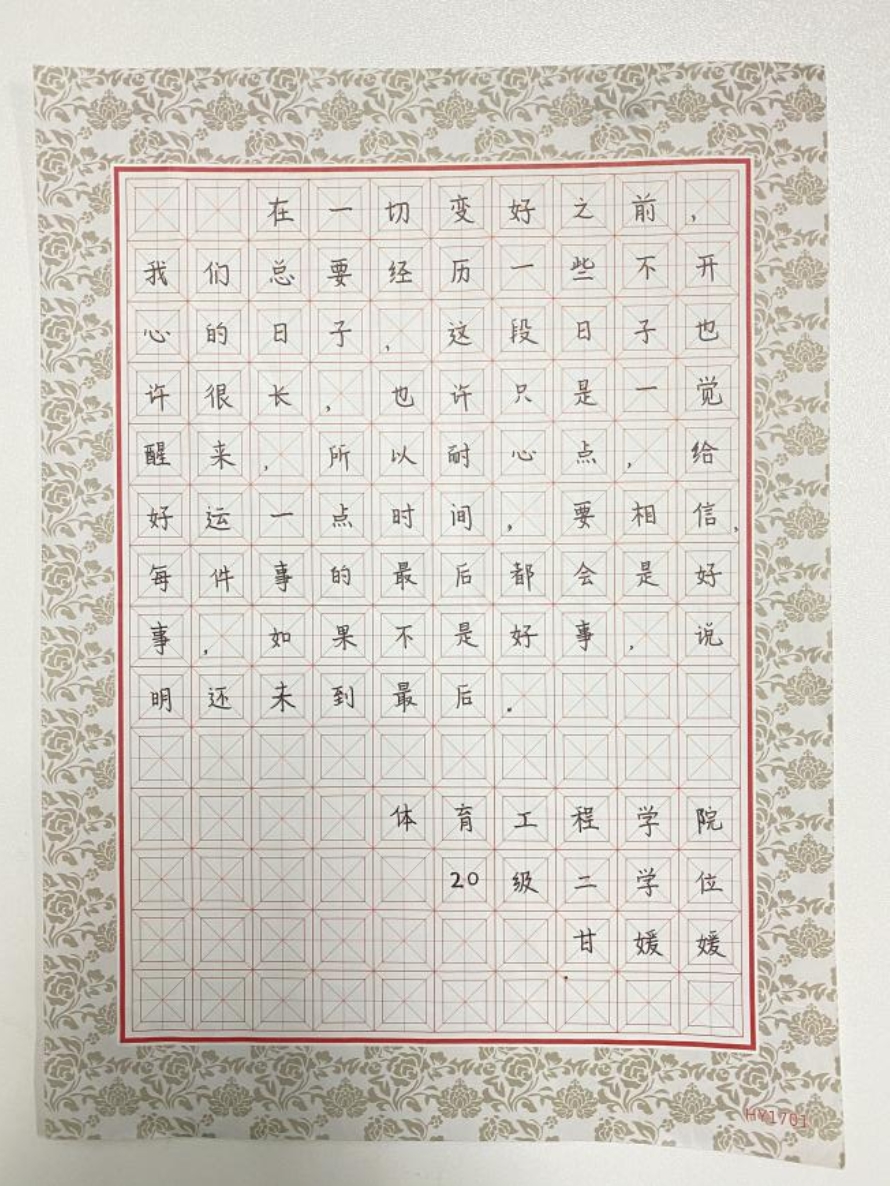 在一切变好之前，
我们总要经历一些不开
心的日子，这段日子也
许很长，也许只是一觉
醒来，所以耐心点，给
好运一点时间，要相信，
每件事的最后都会是好
事，如果不是好事，说
明还未到最后.
体育工程学院
20级二学位
甘媛媛
HY1701